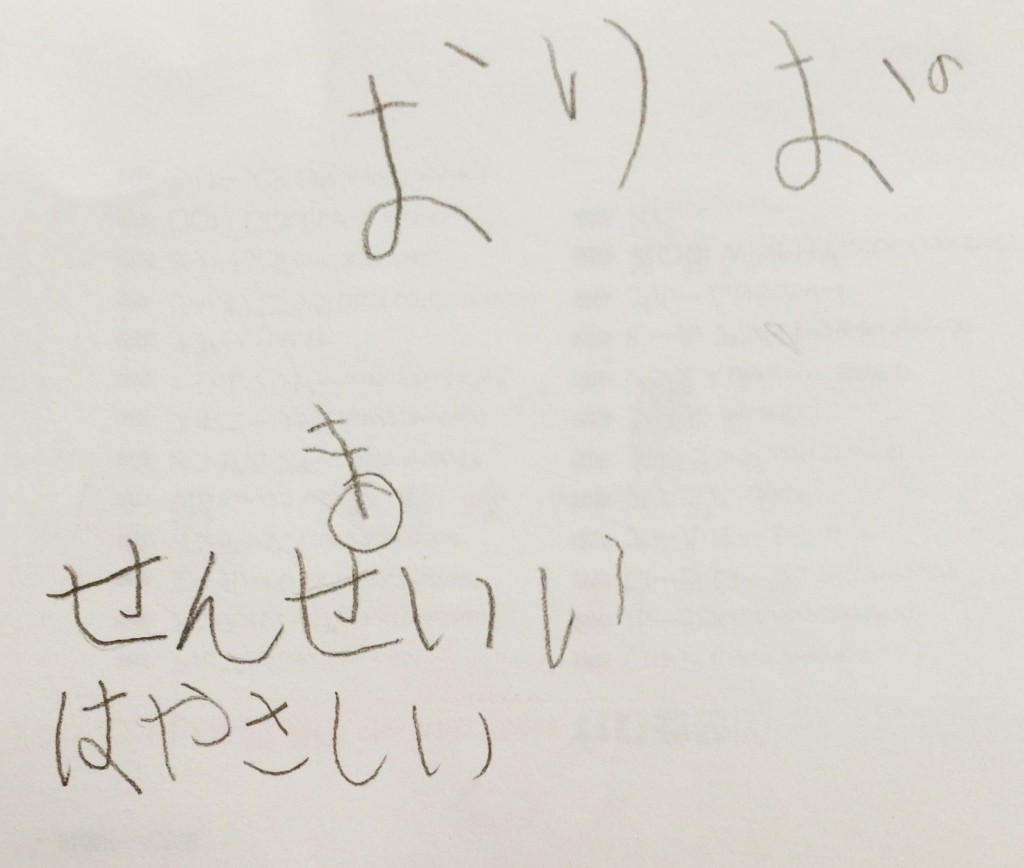 おりお゜
ま
せんせいい
はやさしい